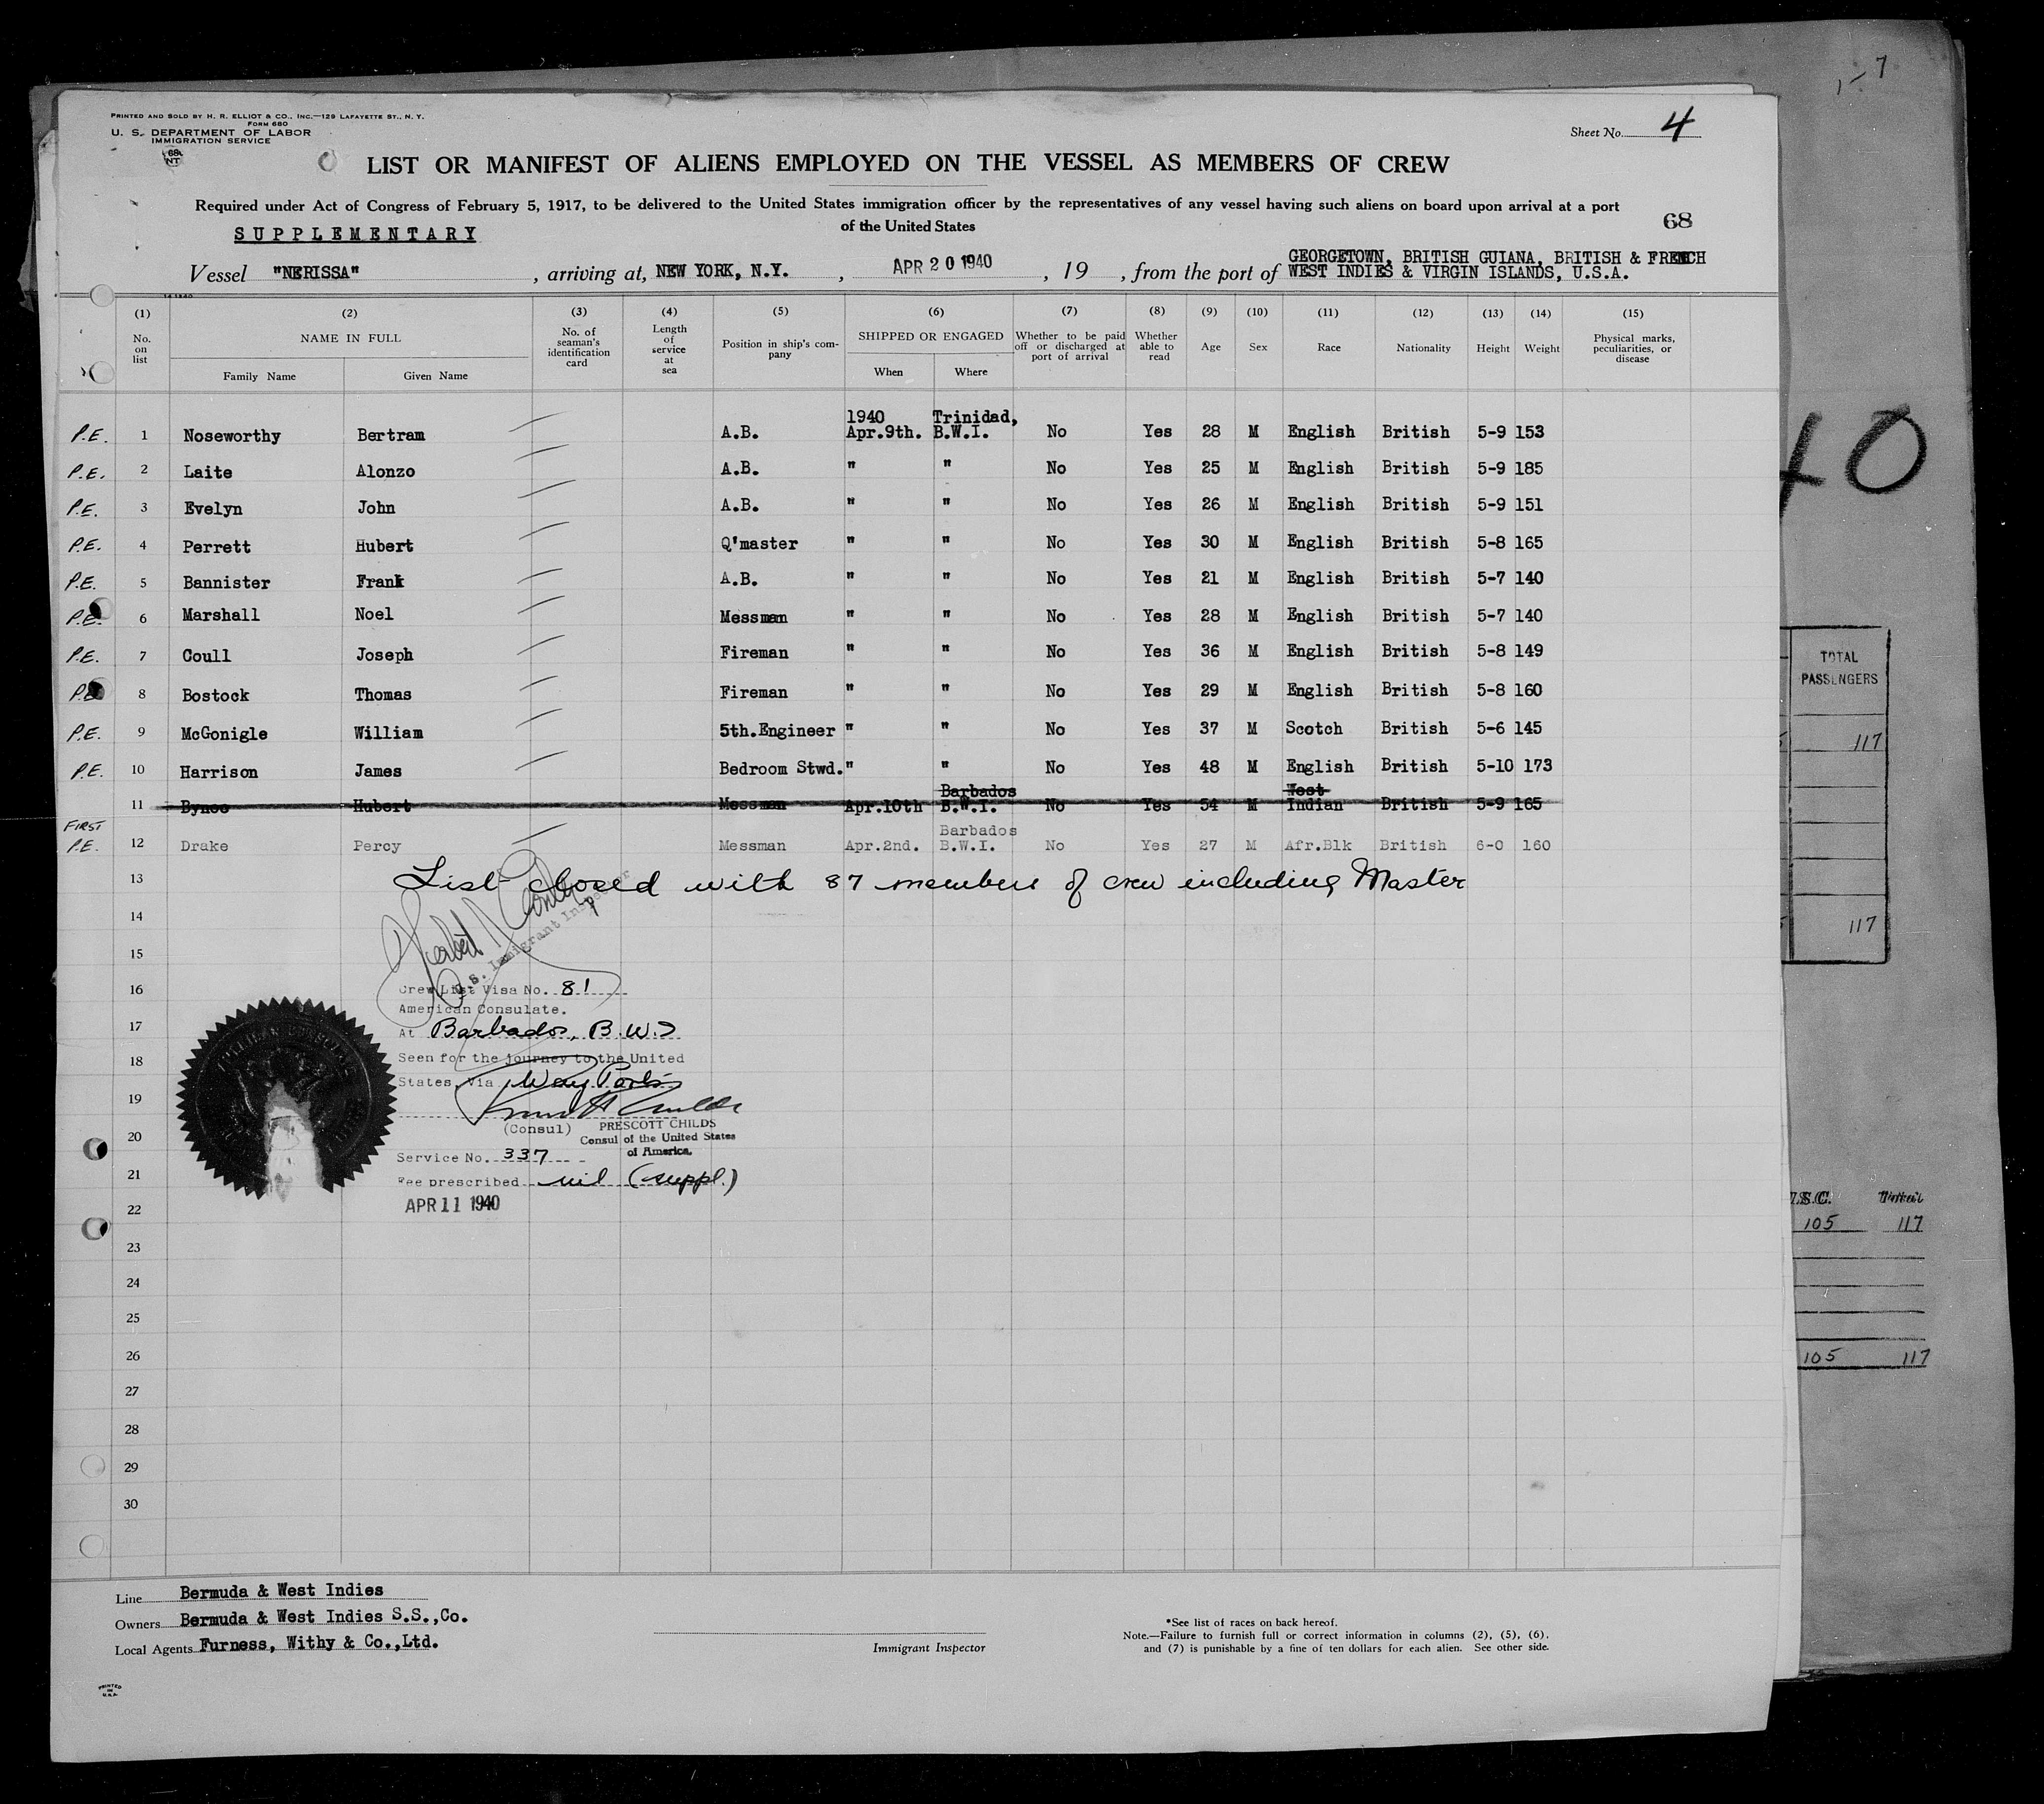 PRINTED AND SOLD BY H. R. ELLIOT & CO., INC.—129 LAFAYETTE ST., N. Y.
FORM 680
U. S. DEPARTMENT OF LABOR
IMMIGRATION SERVICE
68
NT
Sheet No. 4
LIST OR MANIFEST OF ALIENS EMPLOYED ON THE VESSEL AS MEMBERS OF CREW
Required under Act of Congress of February 5, 1917, to be delivered to the United States immigration officer by the representatives of any vessel having such aliens on board upon arrival at a port
of the United States
68
SUPPLEMENTARY
Vessel "NERISSA", arriving at, NEW YORK, N.Y., APR 20 1940, 19 , from the port of GEORGETOWN, BRITISH GUIANA, BRITISH & FRENCH
WEST INDIES & VIRGIN ISLANDS, U.S.A.
(1) (2) (3) (4) (5) (6) (7) (8) (9) (10) (11) (12) (13) (14) (15)
No. on list NAME IN FULL No. of seaman's identification card Length of service at sea Position in ship's company SHIPPED OR ENGAGED Whether to be paid off or discharged at port of arrival Whether able to read Age Sex Race Nationality Height Weight Physical marks, peculiarities, or disease
Family Name Given Name When Where
1940 Trinidad,
P.E. 1 Noseworthy Bertram A.B. Apr.9th. B.W.I. No Yes 28 M English British 5-9 153
P.E. 2 Laite Alonzo A.B. " " No Yes 25 M English British 5-9 185
P.E. 3 Evelyn John A.B. " " No Yes 26 M English British 5-9 151
P.E. 4 Perrett Hubert Q'master " " No Yes 30 M English British 5-8 165
P.E. 5 Bannister Frank A.B. " " No Yes 21 M English British 5-7 140
P.E. 6 Marshall Noel Messman " " No Yes 28 M English British 5-7 140
P.E. 7 Coull Joseph Fireman " " No Yes 36 M English British 5-8 149
P.E. 8 Bostock Thomas Fireman " " No Yes 29 M English British 5-8 160
P.E. 9 McGonigle William 5th.Engineer " " No Yes 37 M Scotch British 5-6 145
P.E. 10 Harrison James Bedroom Stwd. " " No Yes 48 M English British 5-10 173
Barbados West
11 Bynoe Hubert Messman Apr.10th B.W.I. No Yes 54 M Indian British 5-9 165
FIRST Barbados
P.E. 12 Drake Percy Messman Apr.2nd. B.W.I. No Yes 27 M Afr.Blk British 6-0 160
13 List closed with 87 members of crew including Master
14
U.S. Immigrant Inspector
15
16 Crew List Visa No. 81
American Consulate.
17 At Barbados, B.W.I
18 Seen for the journey to the United
States, Via Way Ports
19
(Consul) PRESCOTT CHILDS
20 Consul of the United States
of America.
Service No. 337
21 Fee prescribed nil (suppl.)
22 APR 11 1940
23
24
25
26
27
28
29
30
Line Bermuda & West Indies
Owners Bermuda & West Indies S.S.,Co.
Local Agents Furness, Withy & Co.,Ltd.
Immigrant Inspector
*See list of races on back hereof.
Note.—Failure to furnish full or correct information in columns (2), (5), (6),
and (7) is punishable by a fine of ten dollars for each alien. See other side.
PRINTED
IN
U.S.A.
40
TOTAL
PASSENGERS
117
117
105 117
105 117